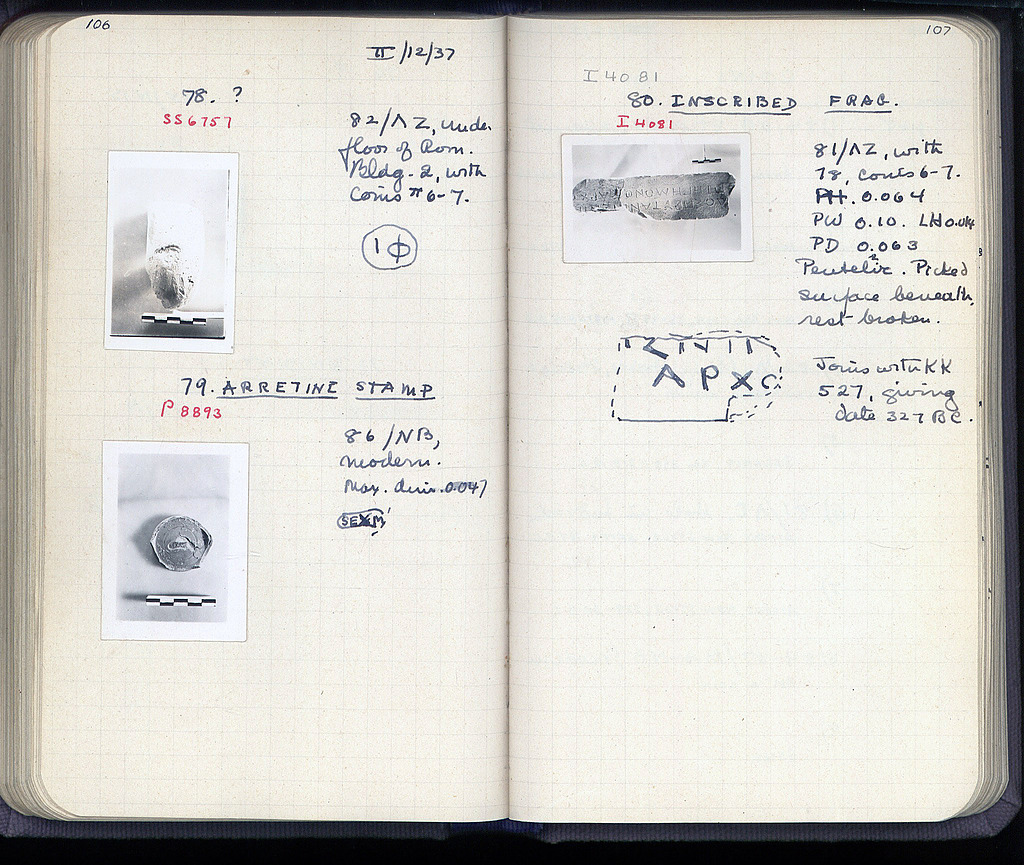 106
II/12/37
78. ?
SS6757
82/ΛZ, under
floor of Rom.
Bldg. 2, with
Coins #6-7.
1Φ
79. ARRETINE STAMP
P 8893
86/NB,
modern.
Max. dim. 0.047
SEXM
107
I 4081
80. INSCRIBED FRAG.
I 4081
81/ΛZ, with
78, coins 6-7.
PH. 0.064
PW 0.10. LH 0.014
PD 0.063
Pentelic. Picked
surface beneath,
rest broken.
ΑΡΧΟ
Joins with KK
527, giving
date 327 BC.